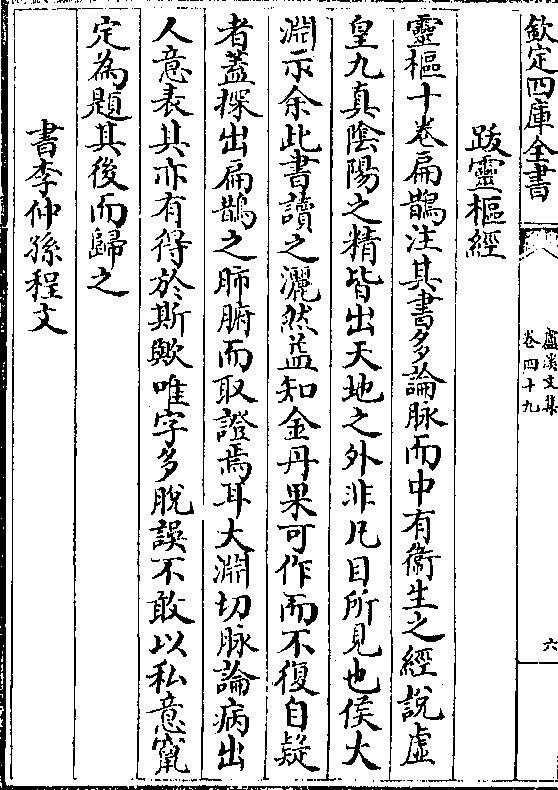 欽定四庫全書
盧溪文集
卷四十九
六
跋靈樞經
靈樞十卷扁鵲注其書多論脉而中有衞生之經說虛
皇九真陰陽之精皆出天地之外非凡目所見也侯大
淵示余此書讀之灑然益知金丹果可作而不復自疑
者蓋探出扁鵲之肺腑而取證焉耳大淵切脉論病出
人意表其亦有得於斯歟唯字多脫誤不敢以私意竄
定為題其後而歸之
書李仲孫程文